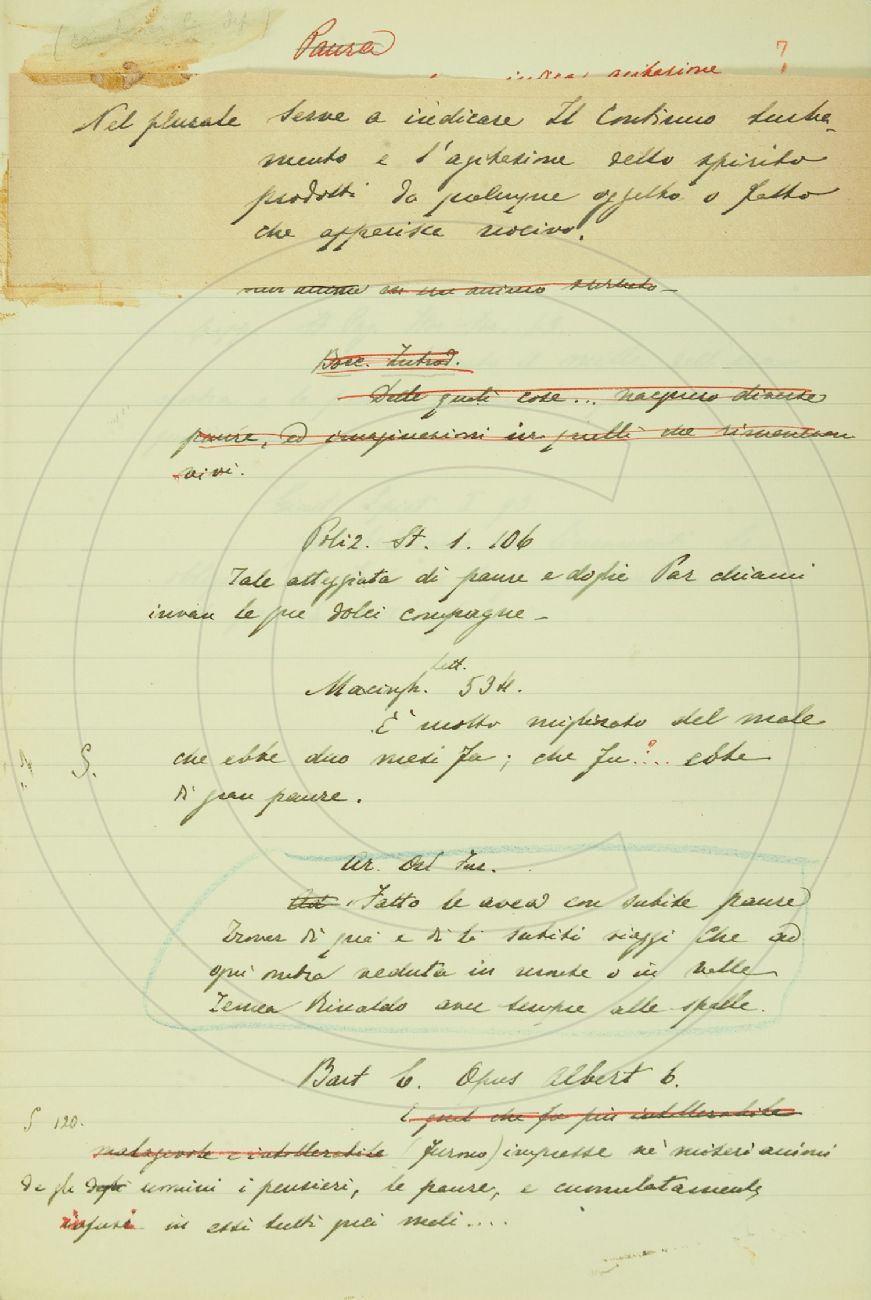 Paura 7
agitazione
Nel plurale serve a indicare Il Continuo turba-
mento e l'agitazione dello spirito
prodotti da qualunque oggetto o fatto
che apparisce nocivo.
animo in un animo turbato –
Bocc. Introd.
Dalle quali cose... nacquero diverse
paure, ed imaginazioni in quelli che rimanevan
vivi.
Poliz. St. 1. 106
Tale atteggiata di paure e doglie Par chiami
invan le sue dolci compagne –
lett.
Macingh. 534.
È molto migliorato del male
S. che ebbe duo mesi fa; che fu ?... ebbe
di gran paure.
Ar. Orl. Fur.
Fatto le avea con subite paure
Trovar di qua e di là subiti viaggi Che ad
ogni ombra veduta in monte o in valle
Temea Rinaldo aver sempre alle spalle.
Bart C. Opus Albert 6.
E quel che fu più intollerabile
§ 120.
malagevole e intollerabile (furono) impresse nè miseri animi
da gli uomini i pensieri, le paure, e cumulatamente
infusi in essi tutti quei mali....